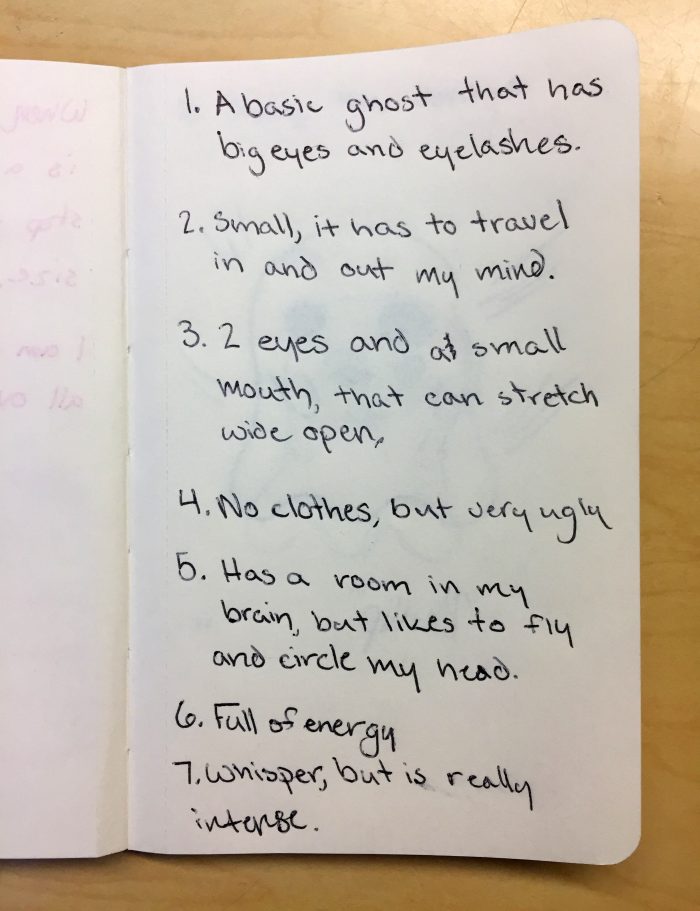 1. A basic ghost that has
big eyes and eyelashes.
2. Small, it has to travel
in and out my mind.
3. 2 eyes and a small
mouth, that can stretch
wide open,
4. No clothes, but very ugly
5. Has a room in my
brain, but likes to fly
and circle my head.
6. Full of energy
7. Whisper, but is really
intense.